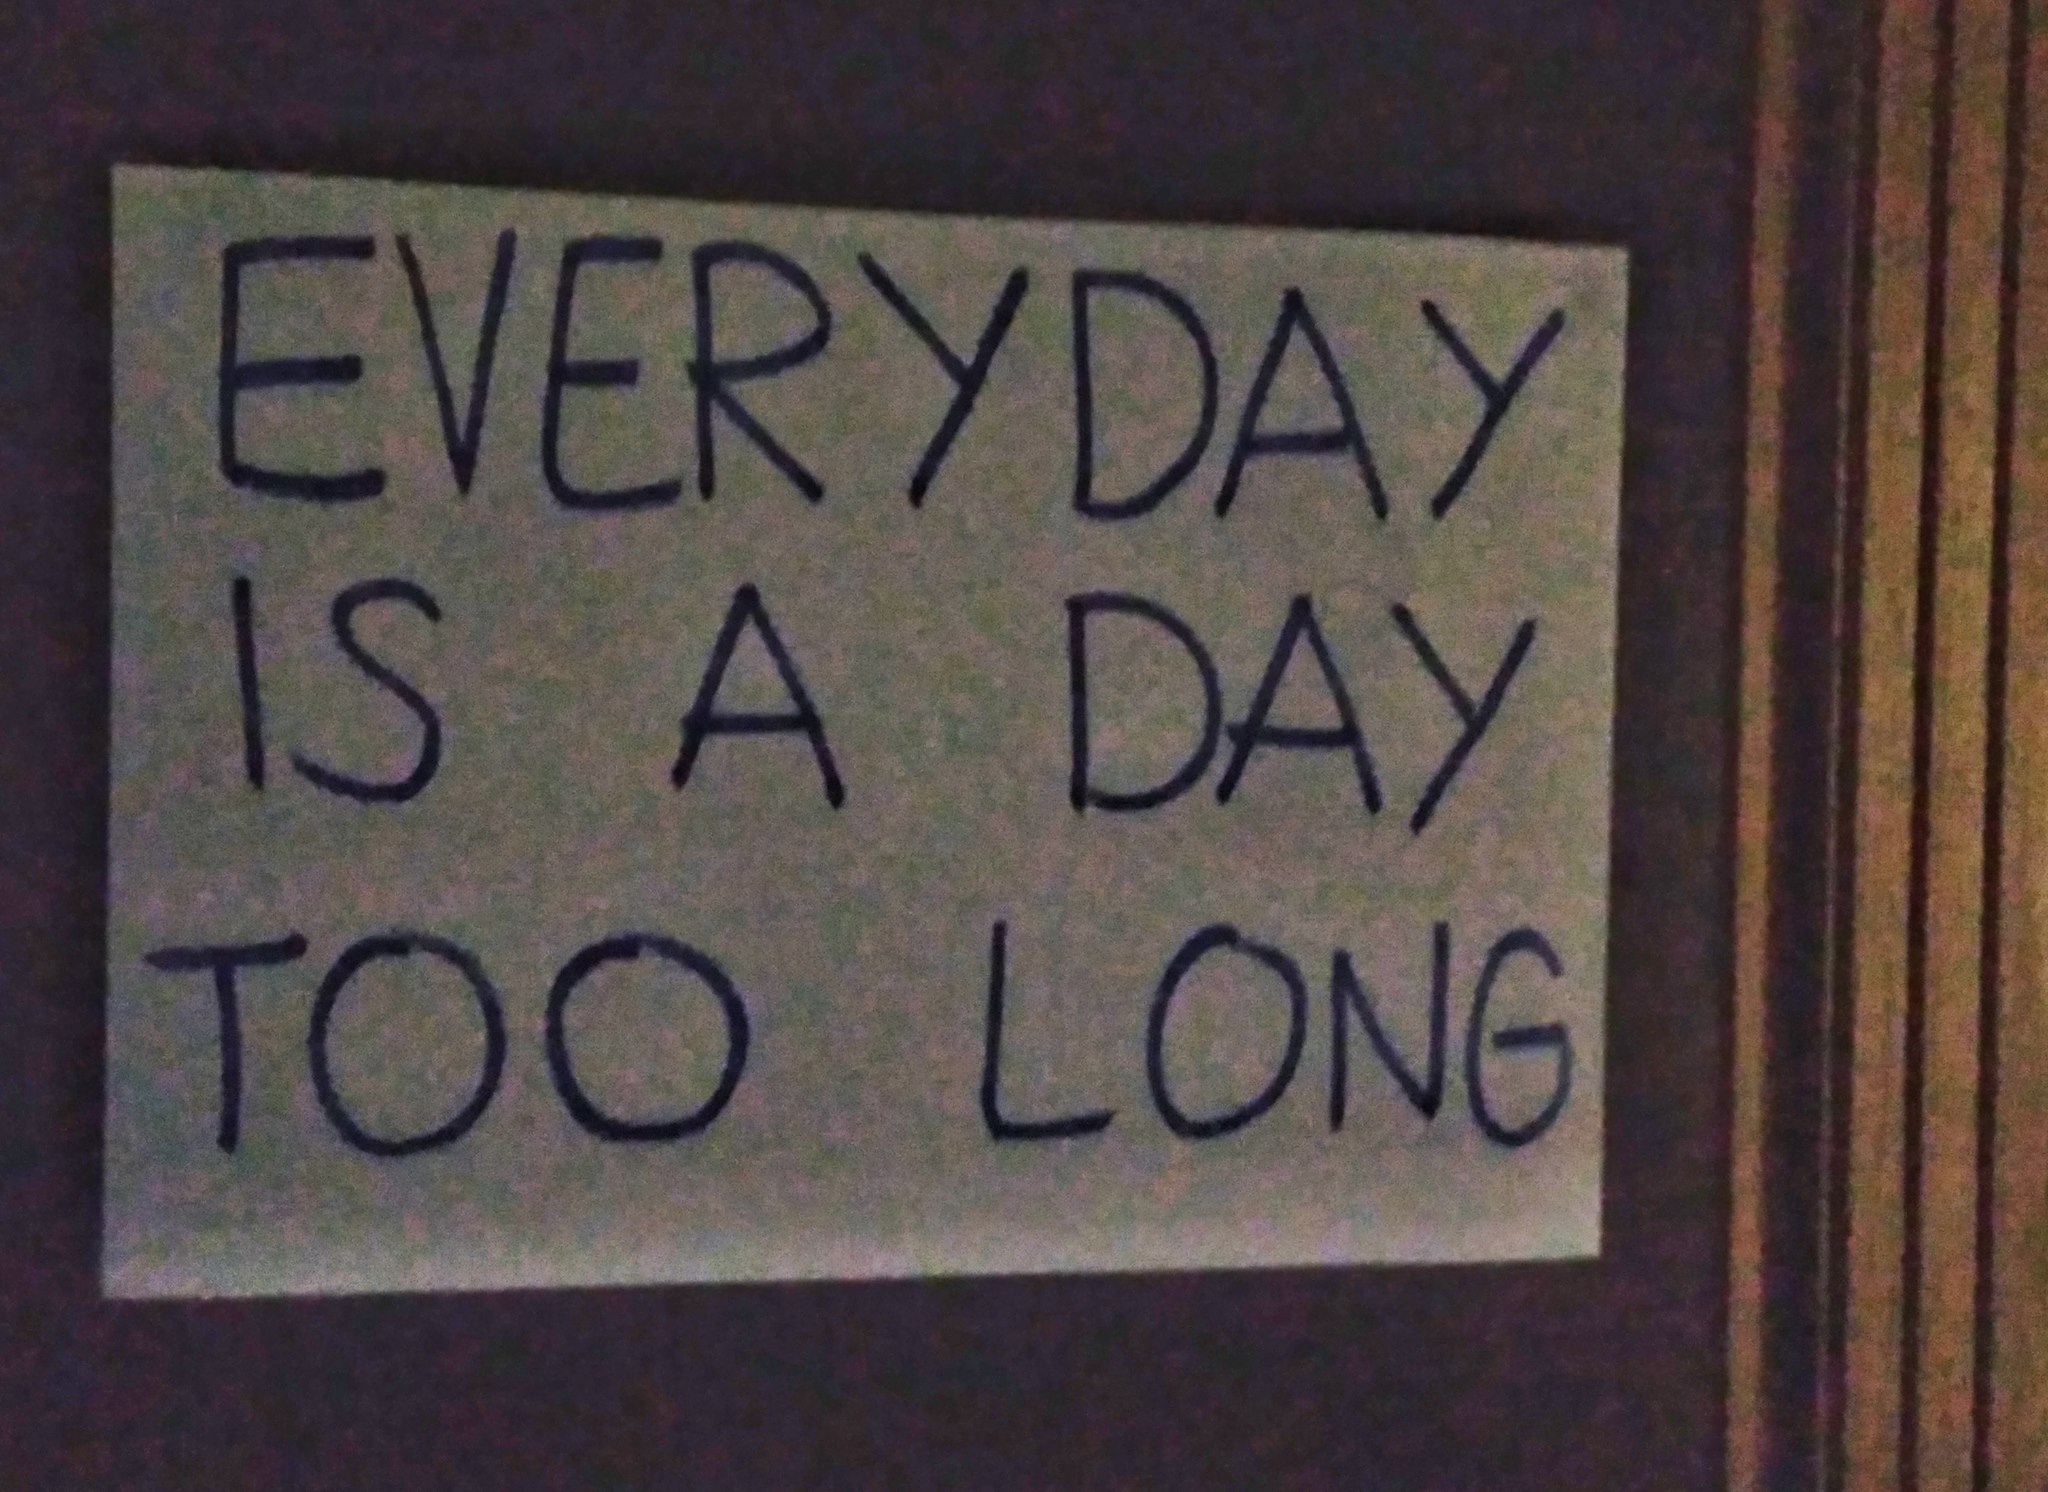 EVERYDAY
IS A DAY
TOO LONG